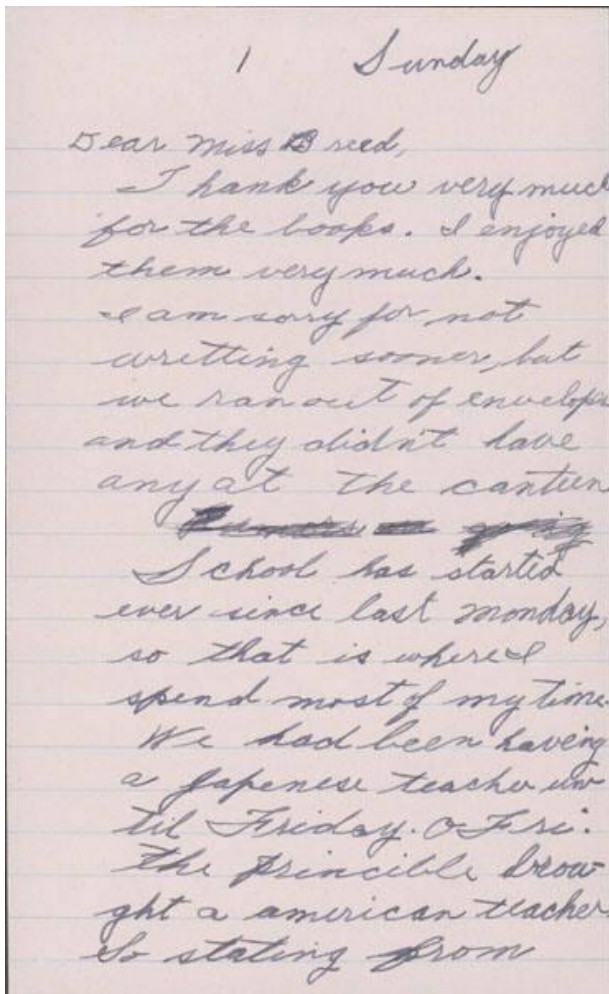 1 Sunday
Dear Miss Breed,
Thank you very much
for the books. I enjoyed
them very much.
I am sorry for not
wretting sooner, but
we ran out of envelope
and they didn't have
any at the canteen
School has started
ever since last monday,
so that is where I
spend most of my time.
We had been having
a Japenese teacher un-
til Friday. O Fri.
the princible brow-
ght a american teacher
So stating from